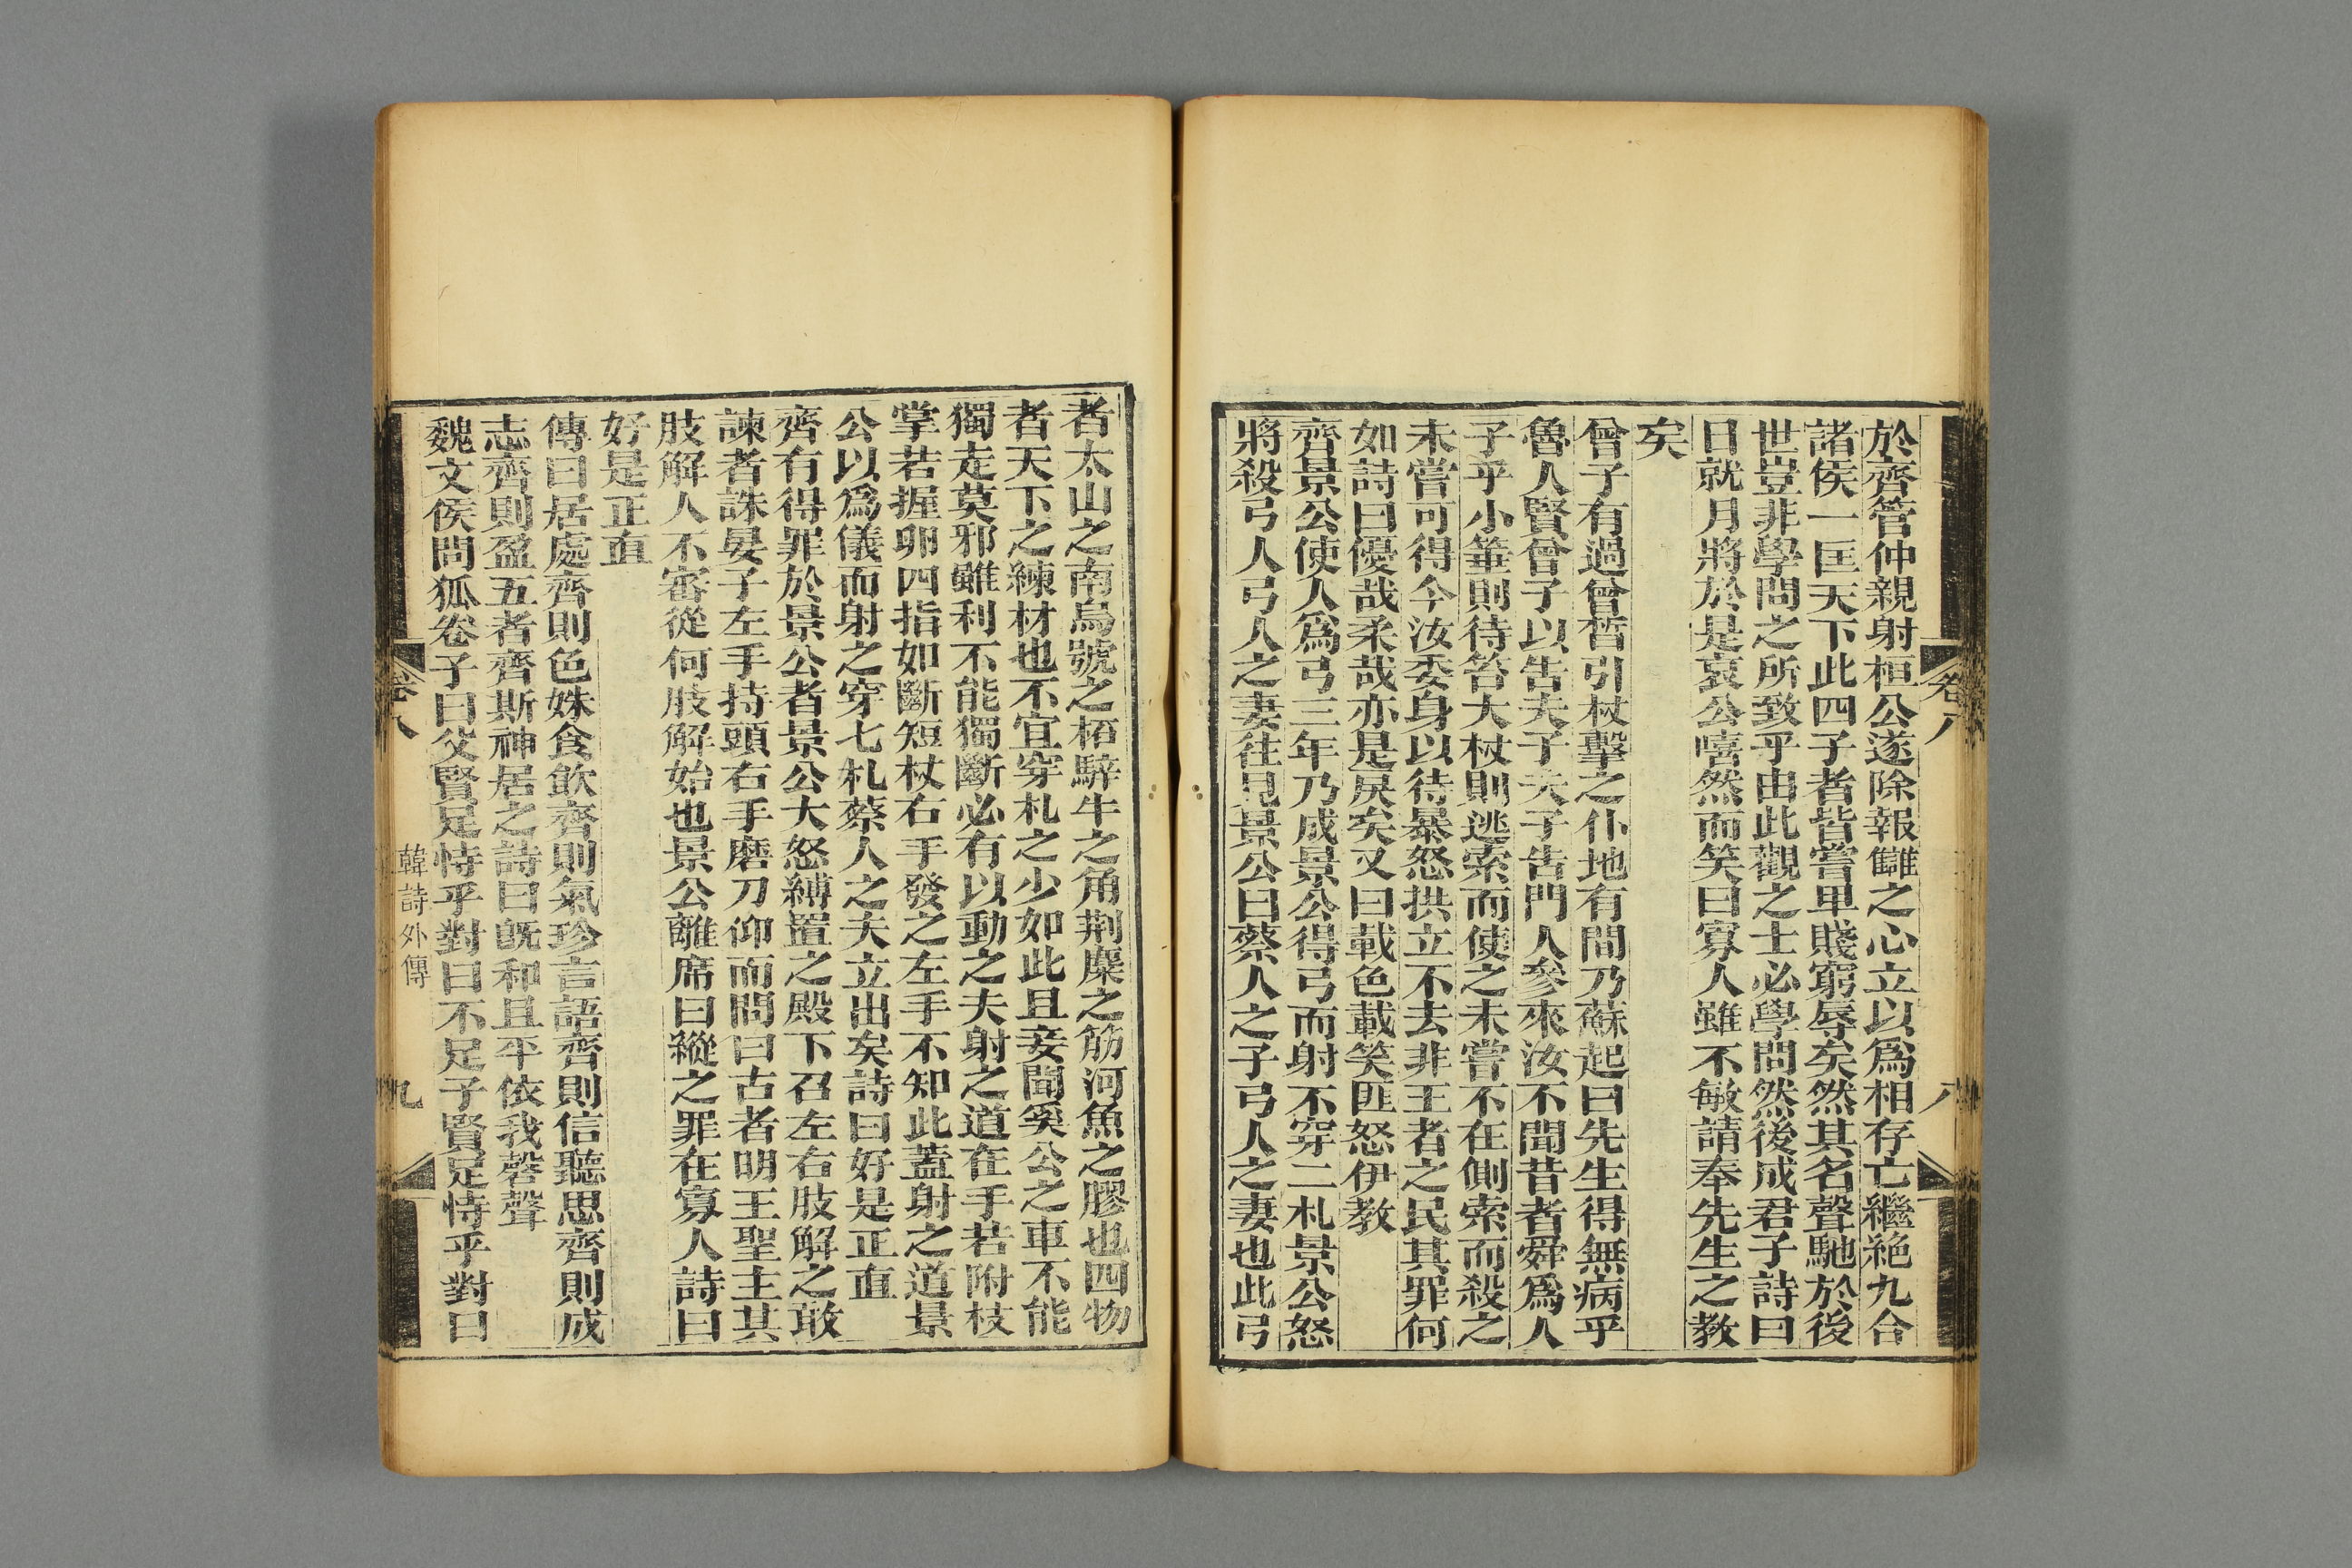 於齊管仲親射桓公遂除報讎之心立以爲相存亡繼絶九合
諸侯一匡天下此四子者皆嘗卑賤窮辱矣然其名聲馳於後
世豈非學問之所致乎由此觀之士必學問然後成君子詩曰
日就月將於是哀公嘻然而笑曰寡人雖不敏請奉先生之教
矣
曾子有過曾晳引杖擊之仆地有間乃蘇起曰先生得無病乎
魯人賢曾子以告夫子夫子告門人參來汝不聞昔者舜爲人
子乎小箠則待笞大杖則逃索而使之未嘗不在側索而殺之
未嘗可得今汝委身以待暴怒拱立不去非王者之民其罪何
如詩曰優哉柔哉亦是戾矣又曰載色載笑匪怒伊教
齊景公使人爲弓三年乃成景公得弓而射不穿二札景公怒
將殺弓人弓人之妻往見景公曰蔡人之子弓人之妻也此弓
卷八
八
者太山之南烏號之栢騂牛之角荆麋之筋河魚之膠也四物
者天下之練材也不宜穿札之少如此且妾聞奚公之車不能
獨走莫邪雖利不能獨斷必有以動之夫射之道在手若附枝
掌若握卵四指如斷短杖右手發之左手不知此蓋射之道景
公以爲儀而射之穿七札蔡人之夫立出矣詩曰好是正直
齊有得罪於景公者景公大怒縛置之殿下召左右肢解之敢
諫者誅晏子左手持頭右手磨刀仰而問曰古者明王聖主其
肢解人不審從何肢解始也景公離席曰縱之罪在寡人詩曰
好是正直
傳曰居處齊則色姝食飲齊則氣珍言語齊則信聽思齊則成
志齊則盈五者齊斯神居之詩曰旣和且平依我磬聲
魏文侯問狐卷子曰父賢足恃乎對曰不足子賢足恃乎對曰
卷八
韓詩外傳
九